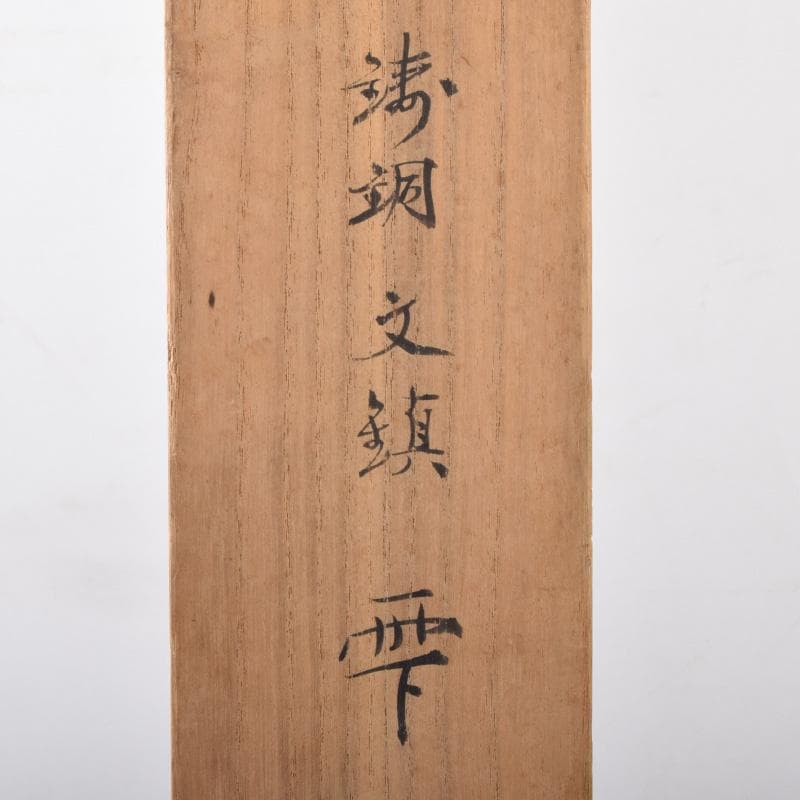 鋳銅文鎮 雫